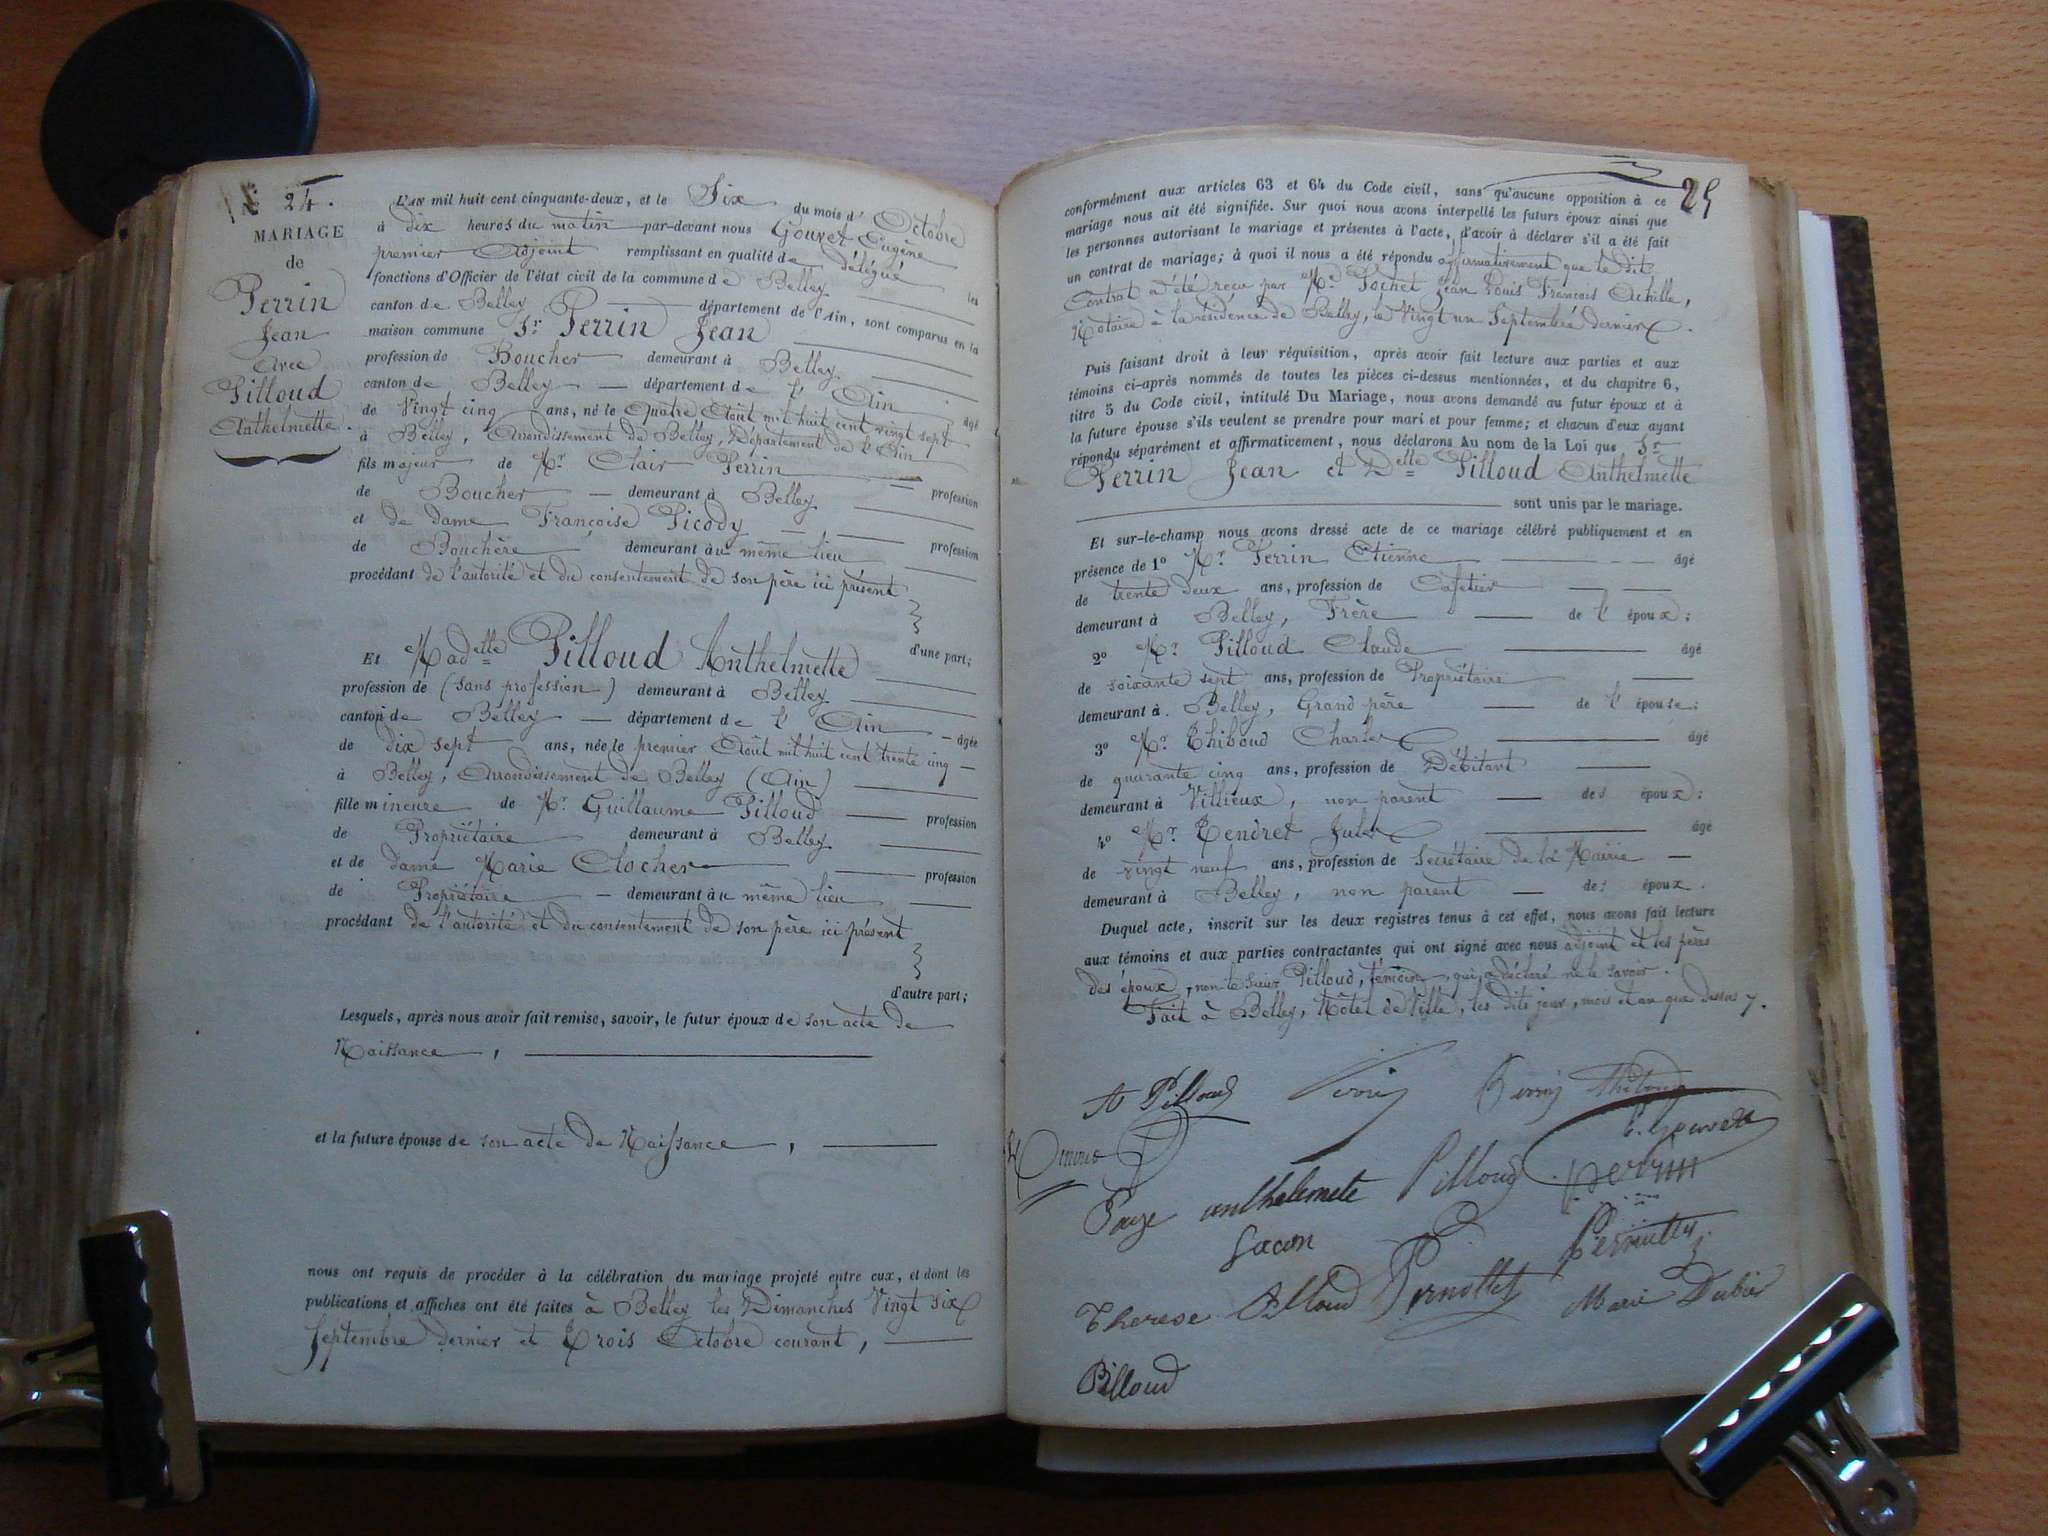 N° 24.
MARIAGE
de
Perrin
Jean
Avec
Pilloud
Anthelmette.
L'AN mil huit cent cinquante-deux, et le Six du mois d'Octobre
à dix heures du matin par-devant nous Gouvet Eugène
premier Adjoint remplissant en qualité de délégué les
fonctions d'Officier de l'état civil de la commune de Belley
canton de Belley département de l'Ain, sont comparus en la
maison commune Sr Perrin Jean
profession de Boucher demeurant à Belley
canton de Belley département de l'Ain âgé
de Vingt cinq ans, né le Quatre Août mil huit cent vingt sept
à Belley, Arrondissement de Belley, Département de l'Ain
fils majeur de Mr Clair Perrin profession
de Boucher demeurant à Belley
et de dame Françoise Picody profession
de Bouchère demeurant au même lieu
procédant de l'autorité et du consentement de son père ici présent
d'une part;
Et Madelle Pilloud Anthelmette
profession de (sans profession) demeurant à Belley
canton de Belley département de l'Ain âgée
de dix sept ans, née le premier Août mil huit cent trente cinq
à Belley, Arrondissement de Belley (Ain)
fille mineure de Mr Guillaume Pilloud profession
de Propriétaire demeurant à Belley
et de dame Marie Clocher profession
de Propriétaire demeurant au même lieu
procédant de l'autorité et du consentement de son père ici présent
d'autre part;
Lesquels, après nous avoir fait remise, savoir, le futur époux de son acte de
Naissance,
et la future épouse de son acte de Naissance,
nous ont requis de procéder à la célébration du mariage projeté entre eux, et dont les
publications et affiches ont été faites à Belley les Dimanches Vingt six
Septembre dernier et Trois Octobre courant,
25
conformément aux articles 63 et 64 du Code civil, sans qu'aucune opposition à ce
mariage nous ait été signifiée. Sur quoi nous avons interpellé les futurs époux ainsi que
les personnes autorisant le mariage et présentes à l'acte, d'avoir à déclarer s'il a été fait
un contrat de mariage; à quoi il nous a été répondu affirmativement que le dit
Contrat a été reçu par Me Pochet Jean Louis François Achille,
Notaire à la résidence de Belley, le Vingt un Septembre dernier.
Puis faisant droit à leur réquisition, après avoir fait lecture aux parties et aux
témoins ci-après nommés de toutes les pièces ci-dessus mentionnées, et du chapitre 6,
titre 5 du Code civil, intitulé Du Mariage, nous avons demandé au futur époux et à
la future épouse s'ils veulent se prendre pour mari et pour femme; et chacun d'eux ayant
répondu séparément et affirmativement, nous déclarons Au nom de la Loi que Sr
Perrin Jean et Delle Pilloud Anthelmette
sont unis par le mariage.
Et sur-le-champ nous avons dressé acte de ce mariage célébré publiquement et en
présence de 1° Mr Perrin Etienne âgé
de trente deux ans, profession de Cafetier
demeurant à Belley, Frère de l'époux;
2° Mr Pilloud Claude âgé
de soixante sept ans, profession de Propriétaire
demeurant à Belley, Grand père de l'épouse;
3° Mr Thiboud Charles âgé
de quarante cinq ans, profession de Débitant
demeurant à Villieux, non parent des époux;
4° Mr Tendret Jules âgé
de vingt neuf ans, profession de Secrétaire de la Mairie
demeurant à Belley, non parent des époux.
Duquel acte, inscrit sur les deux registres tenus à cet effet, nous avons fait lecture
aux témoins et aux parties contractantes qui ont signé avec nous adjoint et les pères
des époux, non le sieur Pilloud, témoin, qui a déclaré ne le savoir.
Fait à Belley, Hôtel de Ville, les dits jour, mois et an que dessus.
A Pilloud Perrin Perrin Thiboud
E. Gouvet
anthelmete Pilloud perrin
Gacon
Therese Pilloud Pernollet Marie Dubois
Pilloud